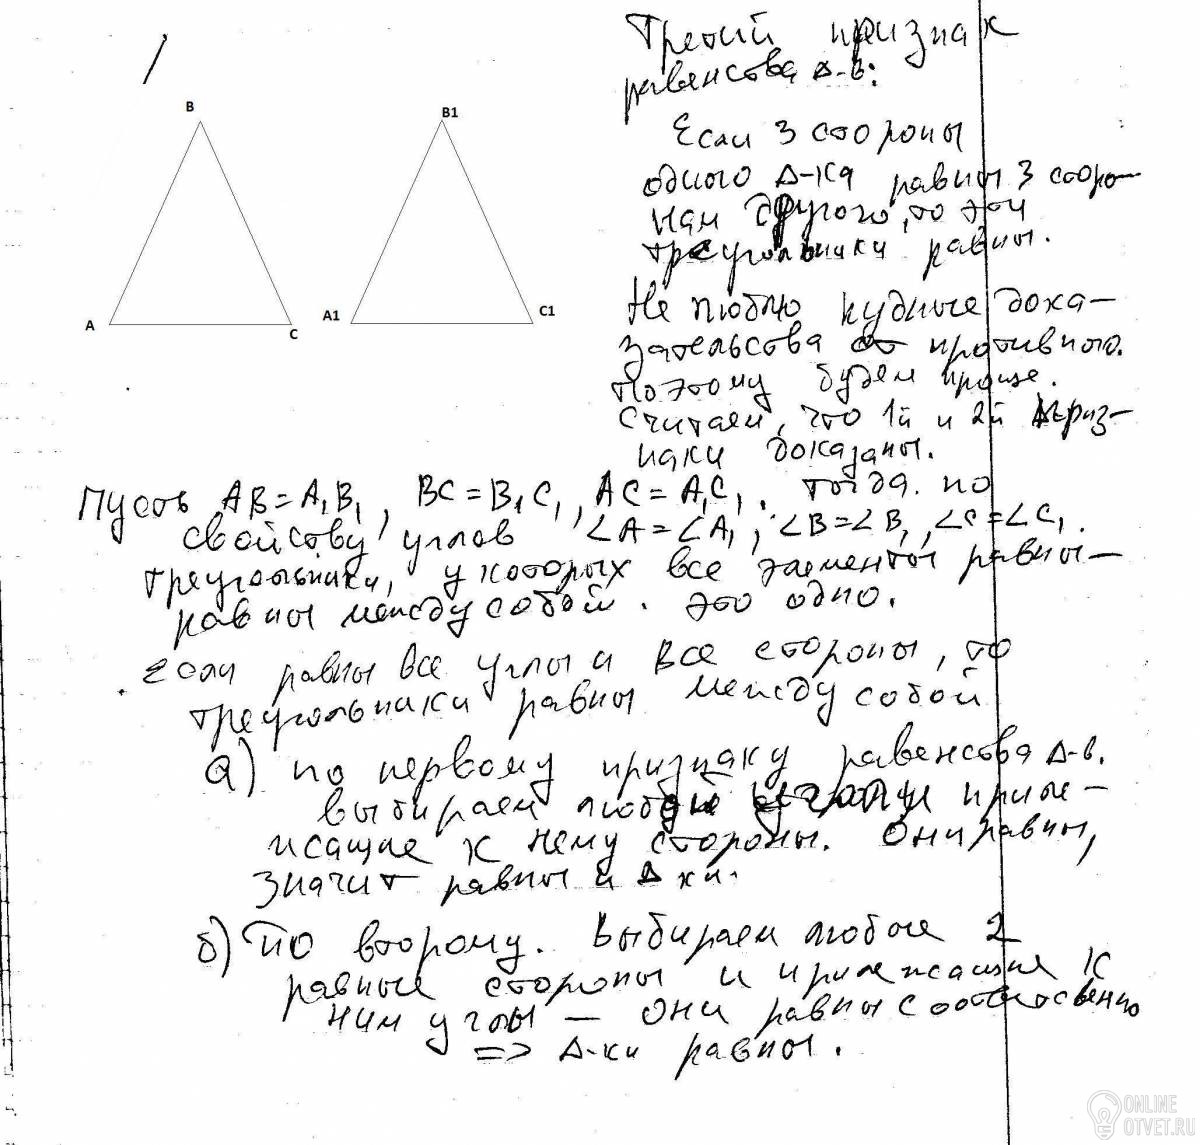 Третий признак
равенсва Δ-в:
B
B1
Если 3 стороны
одного Δ-ка равны 3 сторо-
нам другого, то эти
треугольники равны.
A
C
A1
C1
Не люблю нудные дока-
зательсва от противного.
Поэтому будем проще.
Считаем, что 1й и 2й приз-
наки доказаны.
Пусть AB = A₁B₁, BC = B₁C₁, AC = A₁C₁. Тогда по
свойсву углов ∠A = ∠A₁, ∠B = ∠B₁, ∠C = ∠C₁.
Треугольники, у которых все элементы равны –
равны между собой. Это одно.
Если равны все углы и все стороны, то
треугольники равны между собой
а) по первому признаку равенсва Δ-в.
Выбираем любой угол и приле-
жащие к нему стороны. Они равны,
значит равны и Δ ки.
б) По второму. Выбираем любые 2
равные стороны и прилежащие к
ним углы – они равны соответсвенно
=> Δ-ки равны.
ONLINE
OTVET.RU